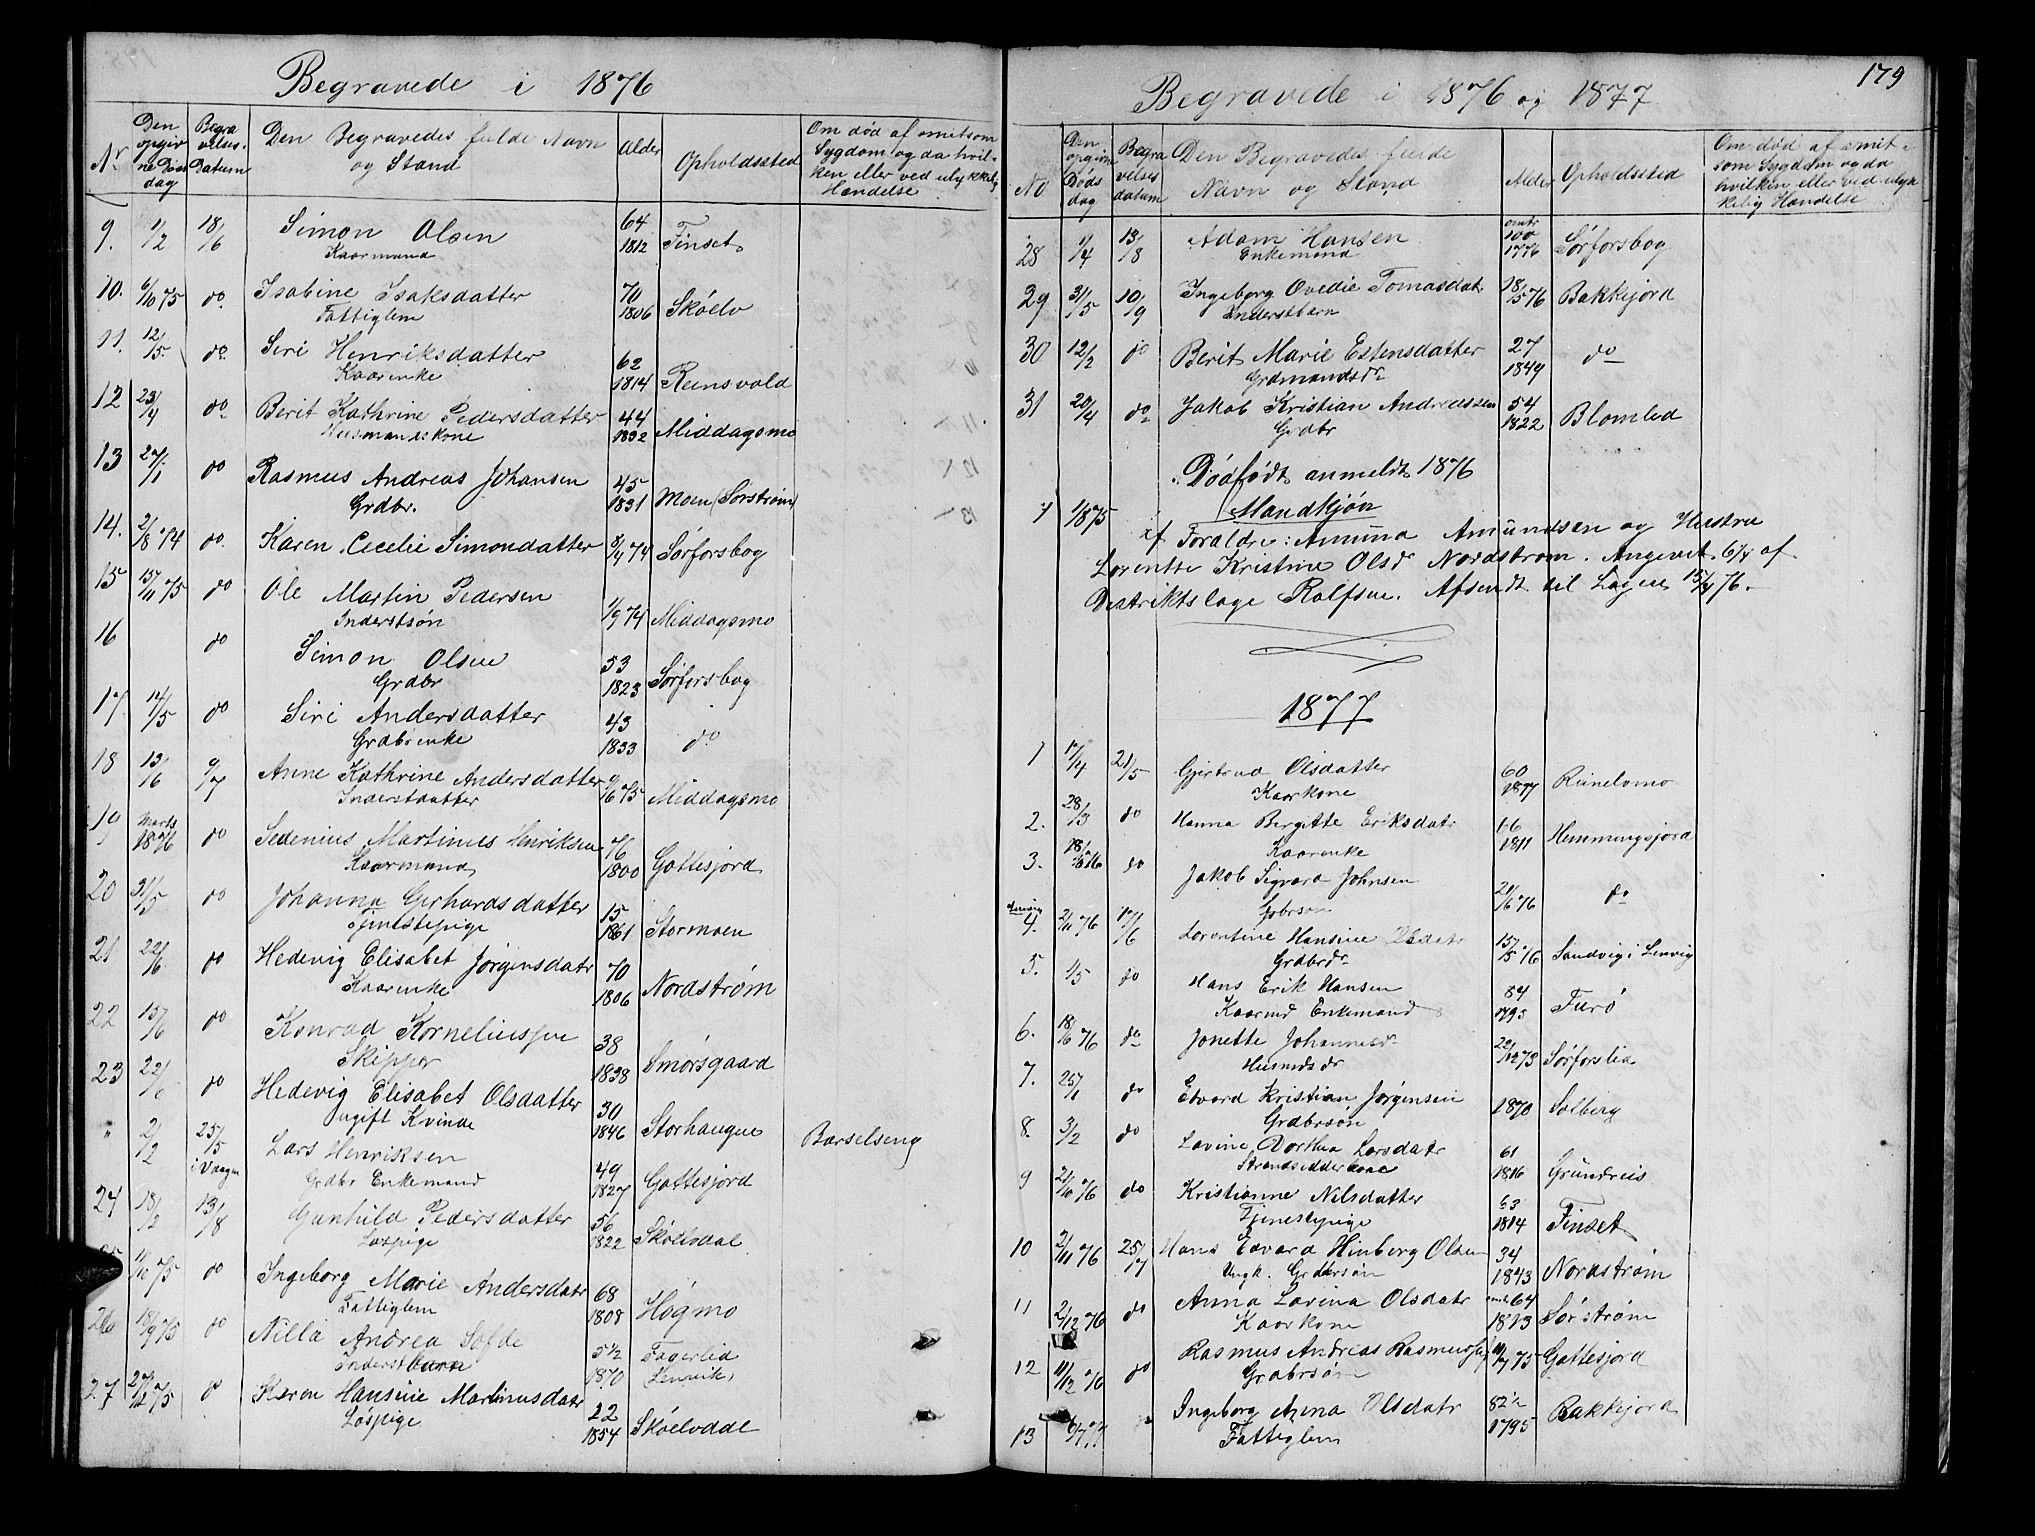 Begravede i 1876
Nr
Den opgivne Døds dag
Begravelses Datum
Den Begravedes fulde Navn og Stand
Alder
Opholdssted
Om død af smitsom Sygdom og da hvilken eller ved ulykkelig Hændelse
9. 1/2 18/6 Simon Olsen 64
Kaarmand 1812 Finset
10. 6/10 75 do Isabine Isaksdatter 70
Fattiglem 1806 Skóelv
11. 12/5 do Siri Henriksdatter 62
Kaarenke 1814 Reinsvold
12 23/4 do Berit Kathrine Pedersdatter 44
Husmandskone 1832 Middagsmo
13 27/1 do Rasmus Andreas Johansen 45
Grdbr. 1831 Moen (Sorstrøm)
14. 2/8 74 do Karen Cecelie Simondatter 8/4 74 Sørforsbog
15 15/11 75 do Ole Martin Pedersen
Inderstsøn 1/9 74 Middagsmo
16 do Simon Olsen 53
Grdbr 1823 Sørforsbog
17 14/5 do Siri Andersdatter 43
Grdbrenke 1833 do
18 13/6 9/7 Anne Kathrine Andersdatter 9/6 75 Middagsmo
Inderstdatter
19 Marts 1876 do Sedenius Martinus Henriksen 76
Kaarmand 1800 Gottesjord
20 31/5 do Johanna Gerhardsdatter 15
Tjenestepige 1861 Stormoen
21 22/6 do Hedevig Elisabet Jørgensdatr 70
Kaarenke 1806 Nordstrøm
22 15/6 do Konrad Korneliussen 38
Skipper 1838 Smørsgaard
23 22/6 do Hedevig Elisabet Olsdatter 30
ugift Kvinde 1846 Storhaugen Barselseng
" 2/2 25/5 i Vaagen Lars Henriksen 49
Grdbr Enkemand 1827 Gottesjord
24 18/2 13/8 Gunhild Pedersdatter 56
Løspige 1822 Skóelvdal
11/10 75 do Ingeborg Marie Andersdatr 68
Fattiglem 1808 Høgmo
26 18/9 75 do Nilla Andrea Sofde 5 1/2
Inderstbarn 1870 Fagerlid (Lenvik)
27 27/12 75 do Karen Hansine Martinusdatr 22
Løspige 1854 Skóelvdal
179
Begravede i 1876 og 1877
No
Den opgivne Døds dag
Begravelses datum
Den Begravedes fulde Navn og Stand
Alder
Opholdssted
Om død af smitsom Sygdom og da hvilken eller ved ulykkelig Hændelse
28 1/4 13/8 Adam Hansen omtr 100
Enkemand 1776 Sørforsbog
29 31/5 10/9 Ingeborg Ovedie Tomasdatr 18/5 76 Bakkejord
Inderstbarn
30 12/2 do Berit Marie Estensdatter 27
Grdmandsdr 1849 do
31 20/4 do Jakob Kristian Andreassen 54
Grdbr 1822 Blomlid
Dødfødt anmeldt 1876
Mandkjøn
1 1/8 75 af Foraldre: Amund Amundsen og Hustru
Lorentse Kristine Olsdr Nordstrøm. Angivet 6/4 af
Distriktslæge Rolfsen. Afsendt til Lagen 15/4 76.
1877
1 17/4 21/5 Gjertrud Olsdatter 60
Kaarkone Reinelvmo
2. 28/3 do Hanna Birgitte Eriksdatr 66
Kaarenke 1811 Hemmingsjord
3. do Jakob Sigvard Johnsen
21/6 76 do
4. 2/11 76 17/6 Lorentine Hansine Olsdatr
Grdbrdr 15/5 76 Sandvig i Lenvig
5. 1/5 do Hans Erik Hansen 84
Kaarmd Enkemand 1793 Furø
6. 18/6 76 do Jonette Johannesdr
Husmdsdr 22/12 73 Sørforslid
7. 25/1 do Edvard Kristian Jørgensen
Grdbrsøn 1870 Solberg
8. 3/2 do Lavine Dorthea Larsdatr 61
Strandsidderkone 1816 Grundreis
9 2/10 76 do Kristianne Nilsdatter 63
Tjenestepige 1814 Finset
10 2/11 76 25/7 Hans Edvard Hinberg Olsen 34
Ungk. Grdbrsøn 1843 Nordstrøm
11 2/12 76 do Anna Lavina Olsdatr 64
Kaarkone 1813 Sørstrøm
12 11/12 76 do Rasmus Andreas Rasmussen 11/7 75 Gottesjord
Grdbrsøn
13 Ingeborg Anna Olsdatr 82 1/2
Fattiglem 1795 Bakkejord